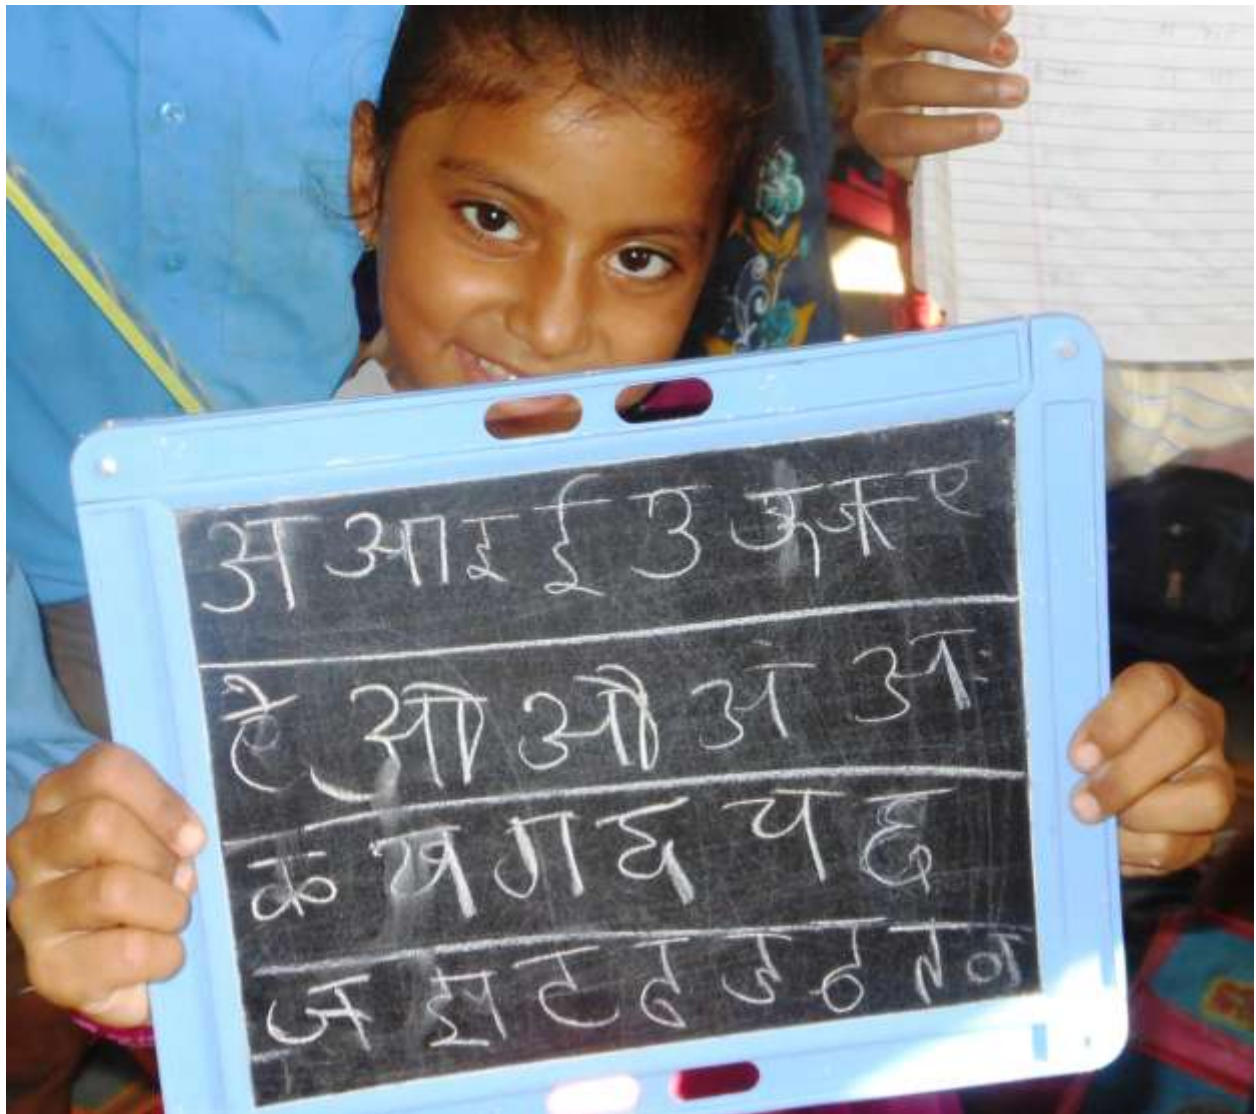 अ आ इ ई उ ऊ ऋ ए
ऐ ओ औ अं अः
क ख ग घ च छ
ज झ ट द ड ढ त न